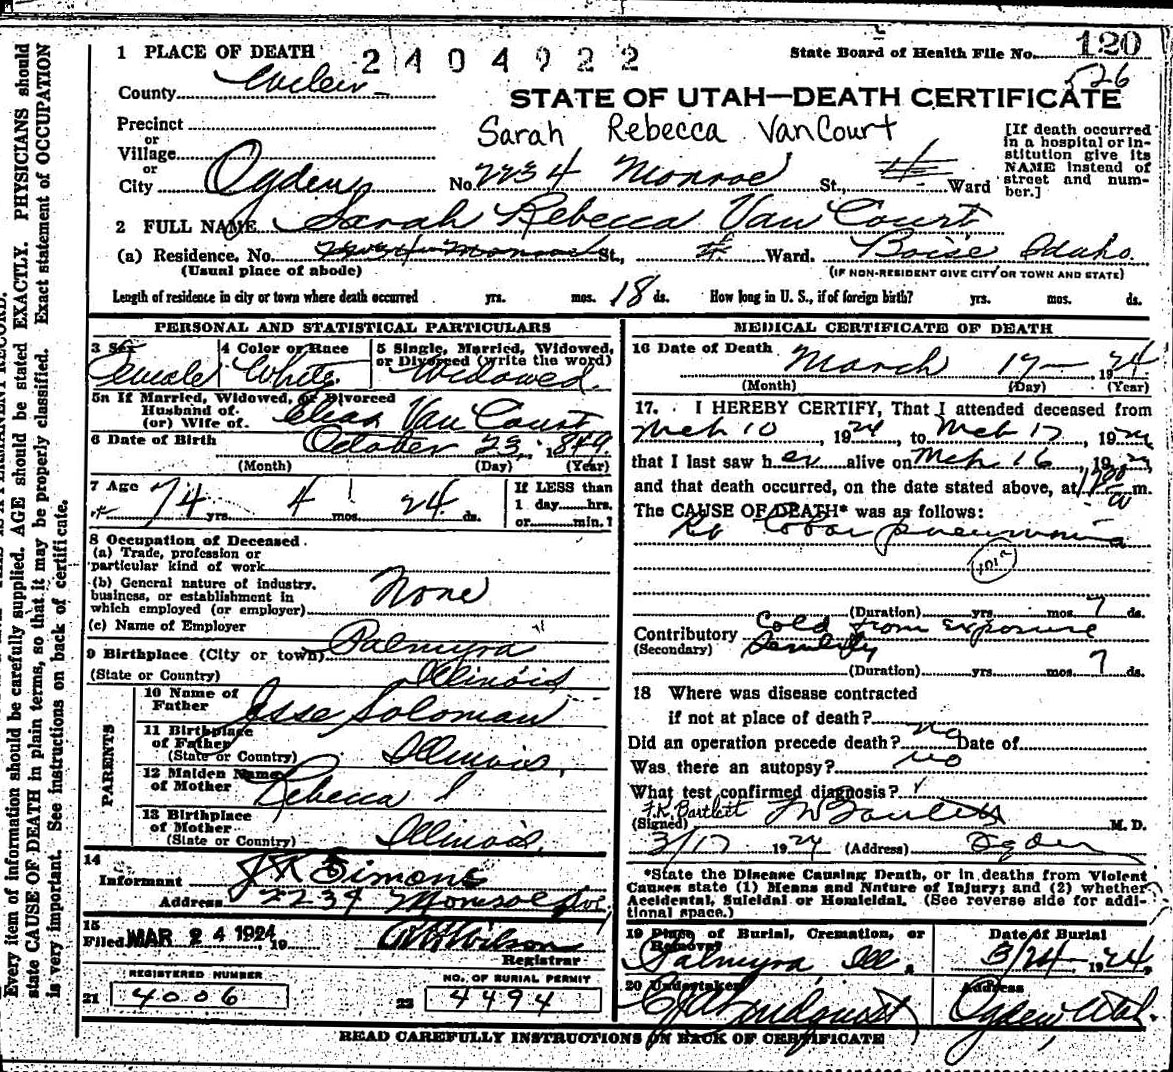 1 PLACE OF DEATH
2404922
State Board of Health File No. 120
526
County Weber
STATE OF UTAH—DEATH CERTIFICATE
Precinct
or
Village
or
City Ogden
Sarah Rebecca VanCourt
No. 2234 Monroe St., Ward
[If death occurred
in a hospital or in-
stitution give its
NAME instead of
street and num-
ber.]
2 FULL NAME Sarah Rebecca Van Court
(a) Residence. No. 2234 Monroe St., Ward. Boise Idaho.
(Usual place of abode)
(IF NON-RESIDENT GIVE CITY OR TOWN AND STATE)
Length of residence in city or town where death occurred yrs. mos. 18 ds. How long in U. S., if of foreign birth? yrs. mos. ds.
PERSONAL AND STATISTICAL PARTICULARS
3 Sex
Female
4 Color or Race
White
5 Single, Married, Widowed,
or Divorced (write the word)
Widowed.
5a If Married, Widowed, or Divorced
Husband of
(or) Wife of Elias Van Court
6 Date of Birth October 23, 1849
(Month) (Day) (Year)
7 Age 74 yrs. 4 mos. 24 ds.
If LESS than
1 day hrs.
or min.?
8 Occupation of Deceased
(a) Trade, profession or
particular kind of work
(b) General nature of industry,
business, or establishment in
which employed (or employer)
None
(c) Name of Employer
9 Birthplace (City or town) Palmyra
(State or Country) Illinois
PARENTS
10 Name of
Father Jesse Soloman
11 Birthplace
of Father
(State or Country) Illinois.
12 Maiden Name
of Mother Rebecca
13 Birthplace
of Mother
(State or Country) Illinois.
14
Informant J K Simons
Address 2234 Monroe Ave,
15
Filed MAR 24 1924 19
Wilson
Registrar
REGISTERED NUMBER
21 4006
NO. OF BURIAL PERMIT
22 4494
MEDICAL CERTIFICATE OF DEATH
16 Date of Death March 17 1924
(Month) (Day) (Year)
17. I HEREBY CERTIFY, That I attended deceased from
Mch 10, 1924, to Mch 17, 1924
that I last saw her alive on Mch 16, 1924,
and that death occurred, on the date stated above, at m.
The CAUSE OF DEATH* was as follows:
Lobar pneumonia
(Duration) yrs. mos. 7 ds.
Contributory Cold from exposure
(Secondary) Senility
(Duration) yrs. mos. 7 ds.
18 Where was disease contracted
if not at place of death?
Did an operation precede death? no Date of
Was there an autopsy? no
What test confirmed diagnosis?
F.K. Bartlett
(Signed) M. D.
3/17 1924 (Address) Ogden
*State the Disease Causing Death, or in deaths from Violent
Causes state (1) Means and Nature of Injury; and (2) whether
Accidental, Suicidal or Homicidal. (See reverse side for addi-
tional space.)
19 Place of Burial, Cremation, or
Removal
Palmyra Ill.
Date of Burial
3/24 1924,
20 Undertaker
Lindquist
Address
Ogden, Utah.
READ CAREFULLY INSTRUCTIONS ON BACK OF CERTIFICATE
Every item of information should be carefully supplied. AGE should be stated EXACTLY. PHYSICIANS should
state CAUSE OF DEATH in plain terms, so that it may be properly classified. Exact statement of OCCUPATION
is very important. See instructions on back of certificate.